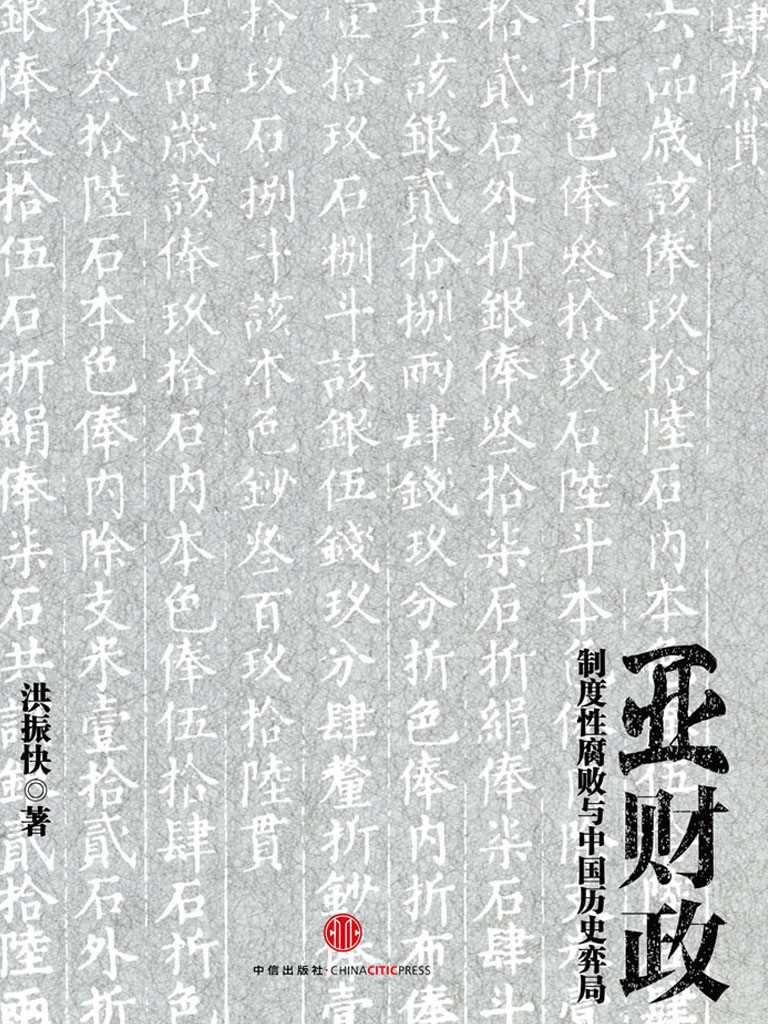 肆拾貫
六品歲該俸玖拾陸石内本
斗折色俸叁拾玖石陸斗本
拾貳石外折銀俸叁拾柒石折絹俸柒石肆斗
共該銀貳拾捌兩肆錢玖分折色俸内折布俸
壹拾玖石捌斗該銀伍錢玖分肆釐折鈔俸壹
拾玖石捌斗該本色鈔叁百玖拾陸貫
七品歲該俸玖拾石内本色俸伍拾肆石折色
俸叁拾陸石本色俸内除支米壹拾貳石外折
銀俸叁拾伍石折絹俸柒石共該銀貳拾陸兩
亚财政
制度性腐败与中国历史弈局
洪振快◎著
中信出版社·CHINACITICPRESS